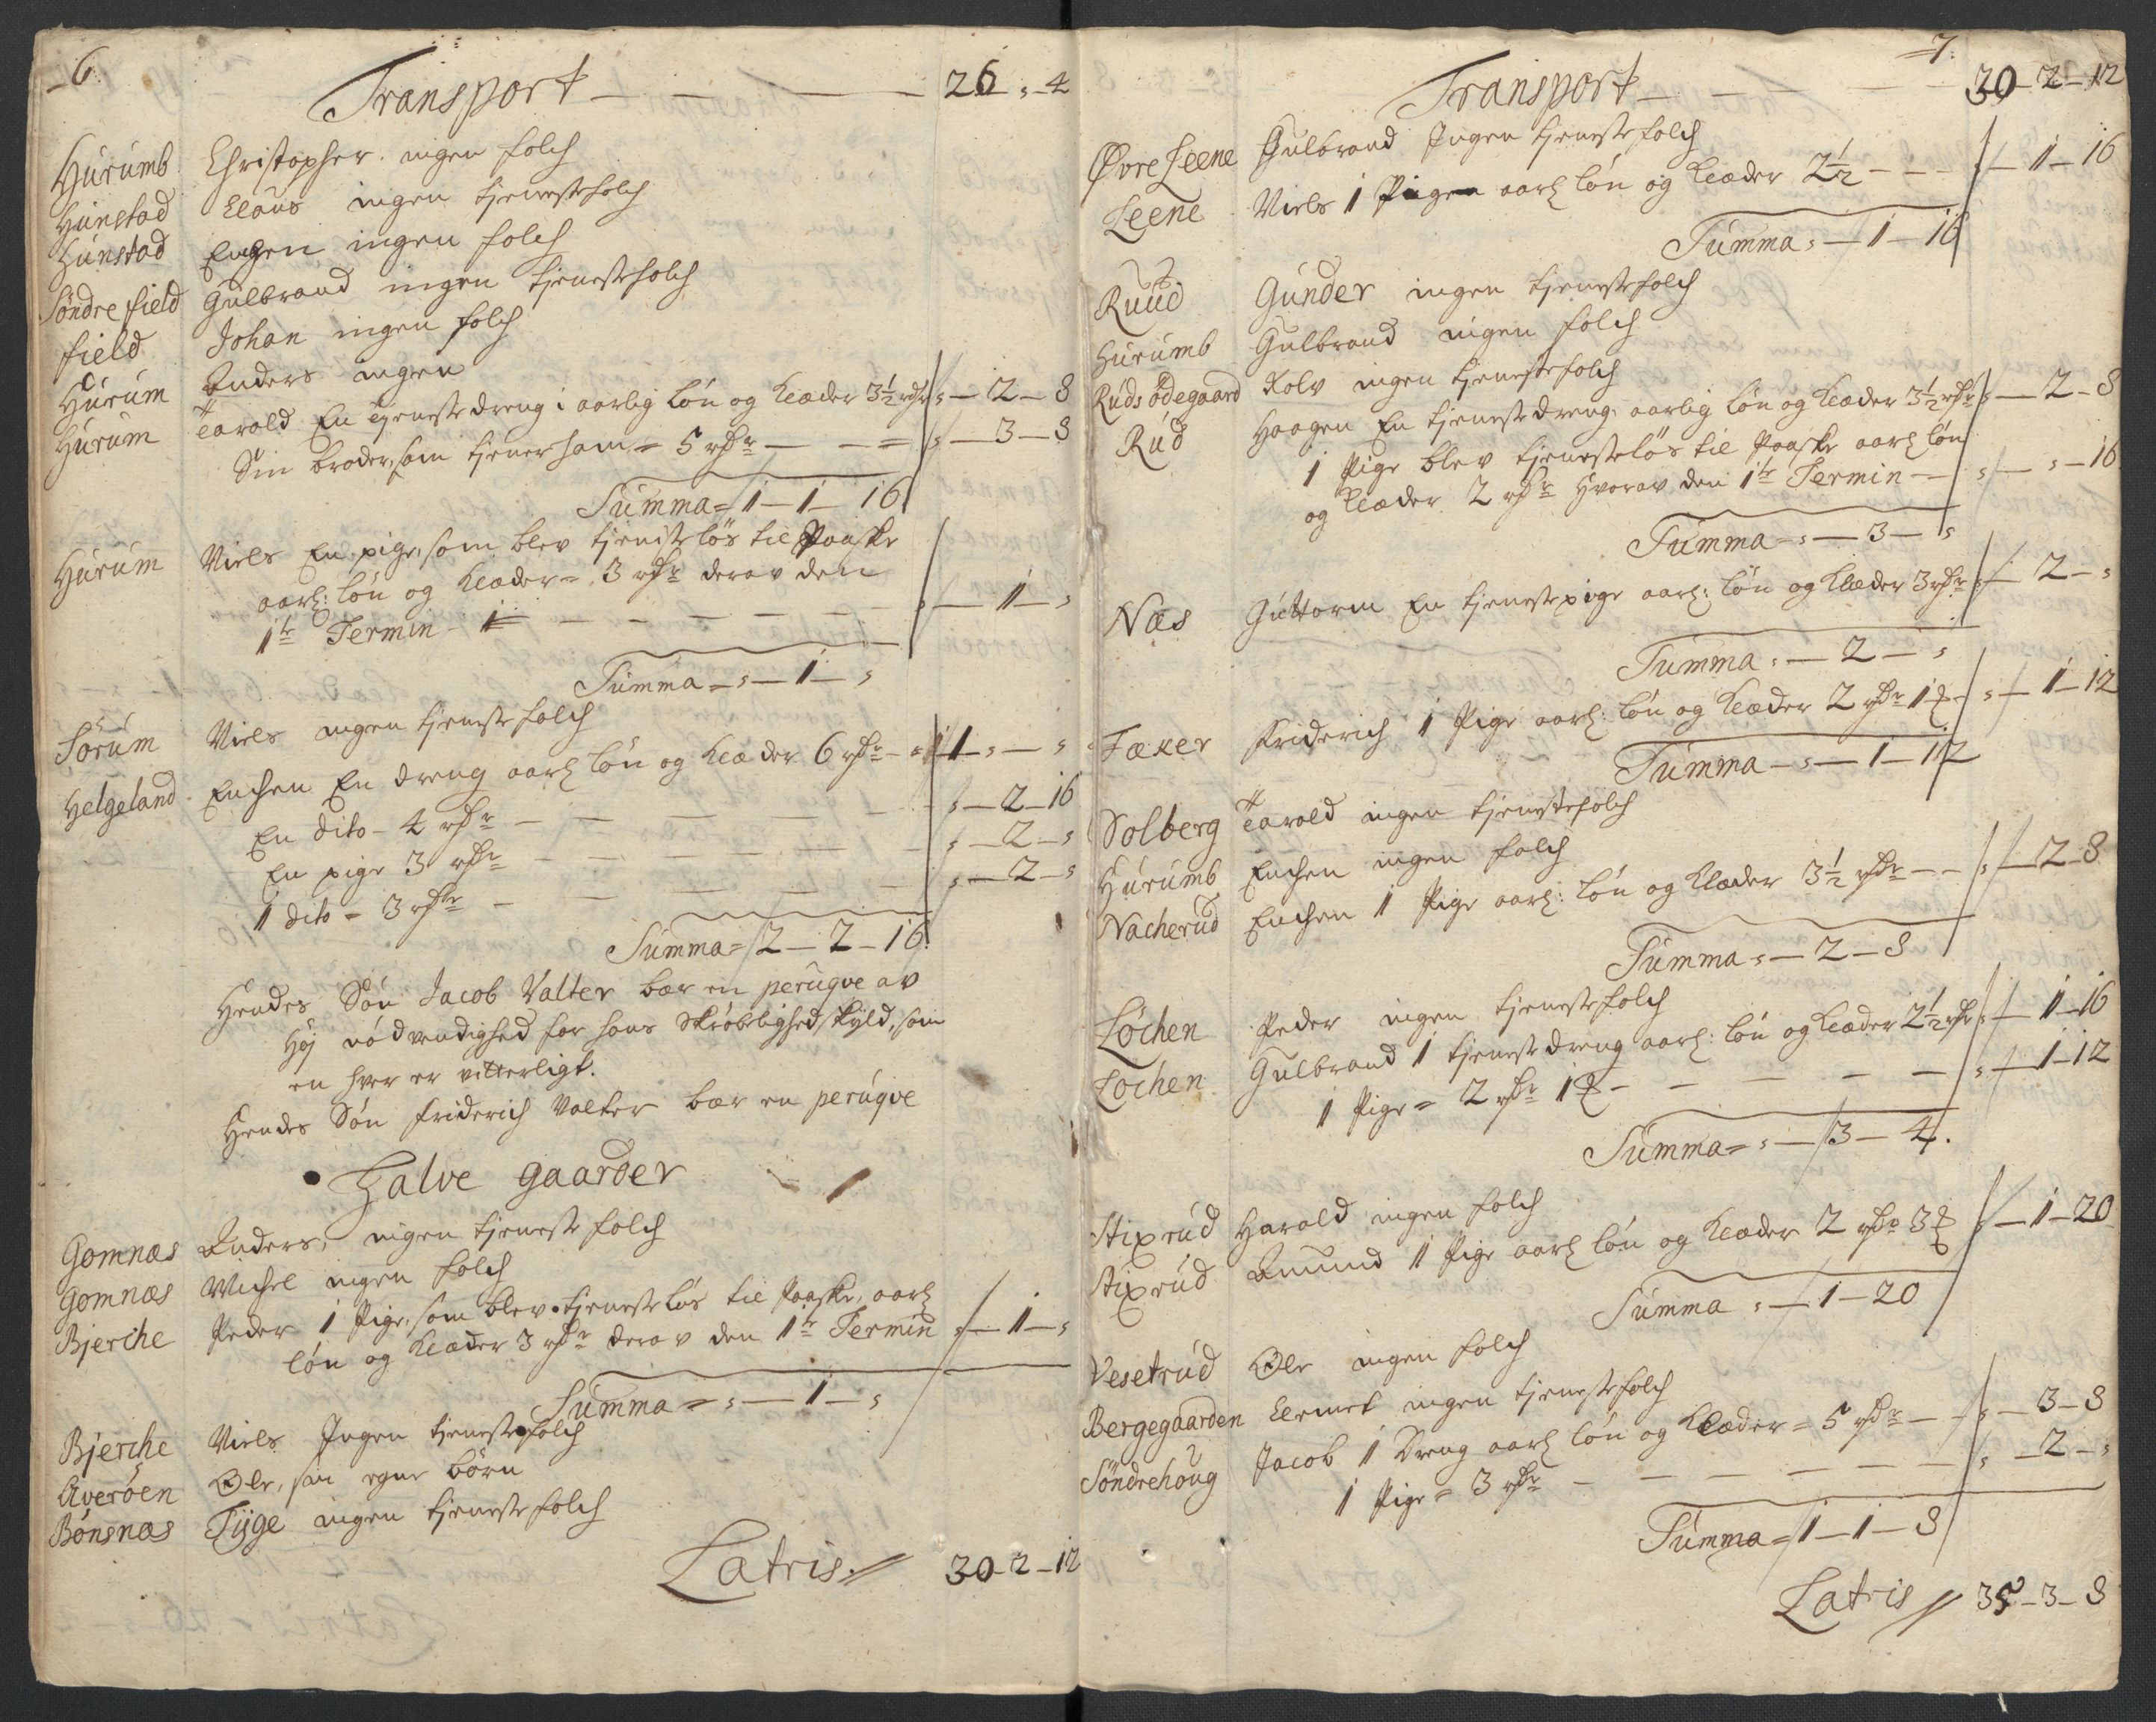 6.
Transport — — — — 26 „ - 4
Hurumb Christopher. ingen folch
Hunstad Claus ingen tjenestefolch
Hunstad Enchen ingen folch
Söndre field Gulbrand ingen tjenestefolch
field Johan ingen folch
Hurum Anders ingen
Hurum Tarald En tjeneste dreng i aarlig lön og Klæder 3½ rdr „ — 2 — 8
Sin broder, som tjener ham = 5 rdr — — = „ — 3 — 8
Summa = 1 — 1 — 16
Hurum Niels En pige, som blev tjenistelös til Paaske
aarl: lön og Klæder = 3 rdr derav den
1te Termin — — — — — „ — 1 — „
Summa = „ — 1 — „
Sörum Niels ingen tjeneste folch
Helgeland Enchen En dreng aarl lön og Klæder 6 rdr — 1 „ — „
En dito - 4 rdr — — — — — „ — 2 — 16
En pige 3 rdr — — — — — „ — 2 — „
1 dito = 3 rdr — — — — „ — 2 — „
Summa = 2 — 2 — 16.
Hendes Sön Jacob Valter bær en perugve av
Höj nödvendighed for hans Skröbelighed skyld, som
en hver er vitterligt.
Hendes Sön Friderich Valter bær en perugve
Halve gaarder
Gomnæs Anders, ingen tjeneste folch
Gomnæs Michel ingen folch
Bjerche Peder 1 Pige, som blev tjenesteløs til Paaske, aarl
lön og Klæder 3 rdr derav den 1te Termin „ — 1 — „
Summa = „ — 1 — „
Bjerche Niels Ingen tjenestefolch
Averöen Ole, sin egne börn
Bönsnæs Tyge ingen tjeneste folch
Latris 30 - 2 — 12
7.
Transport — — — — 30 — 2 — 12
Øvre Leene Gulbrand Ingen tjenestefolch
Leene Niels 1 Pige aarl lön og Klæder 2½ — — „ — 1 — 16
Summa „ — 1 — 16
Ruud Gunder ingen tjenestefolch
Hurumb Gulbrand ingen folch
Ruds ödegaard Rolv ingen tjenestefolch
Rud Haagen En tjenestedreng aarlig lön og Klæder 3½ rdr „ — 2 — 8
1 Pige blev tjenestelös til Paaske aarl lön
og Klæder 2 rdr hvorav den 1te Termin — „ — „ — 16
Summa — „ — 3 — „
Næs Guttorm En tjenestepige aarl: lön og Klæder 3 rdr „ — 2 — „
Summa „ — 2 — „
Fæker Friderich 1 Pige aarl: lön og Klæder 2 rdr 1 — „ — 1 — 12
Summa — „ — 1 — 12
Solberg Tarald ingen tjenestefolch
Hurumb Enchen ingen folch
Nacherud Enchen 1 Pige aarl: lön og Klæder 3½ rdr — — „ — 2 — 8
Summa „ — 2 — 8
Löchen Peder ingen tjenestefolch
Lochen Gulbrand 1 tjeneste dreng aarl: lön og Klæder 2½ rdr „ — 1 — 16
1 Pige = 2 rdr 1 — — — — — „ — 1 — 12
Summa = „ — 3 — 4.
Stixrud Harald ingen folch
Stixrud Amund 1 Pige aarl lön og Klæder 2 rdr 3 „ — 1 — 20
Summa „ — 1 — 20
Vesetrud Ole ingen folch
Bergegaarden Clemet ingen tjenestefolch
Söndrehoug Jacob 1 Dreng aarl lön og Klæder = 5 rdr — — „ — 3 — 8
1 Pige = 3 rdr — — — — — „ — 2 — „
Summa = 1 — 1 — 8
Latris 35 — 3 — 8